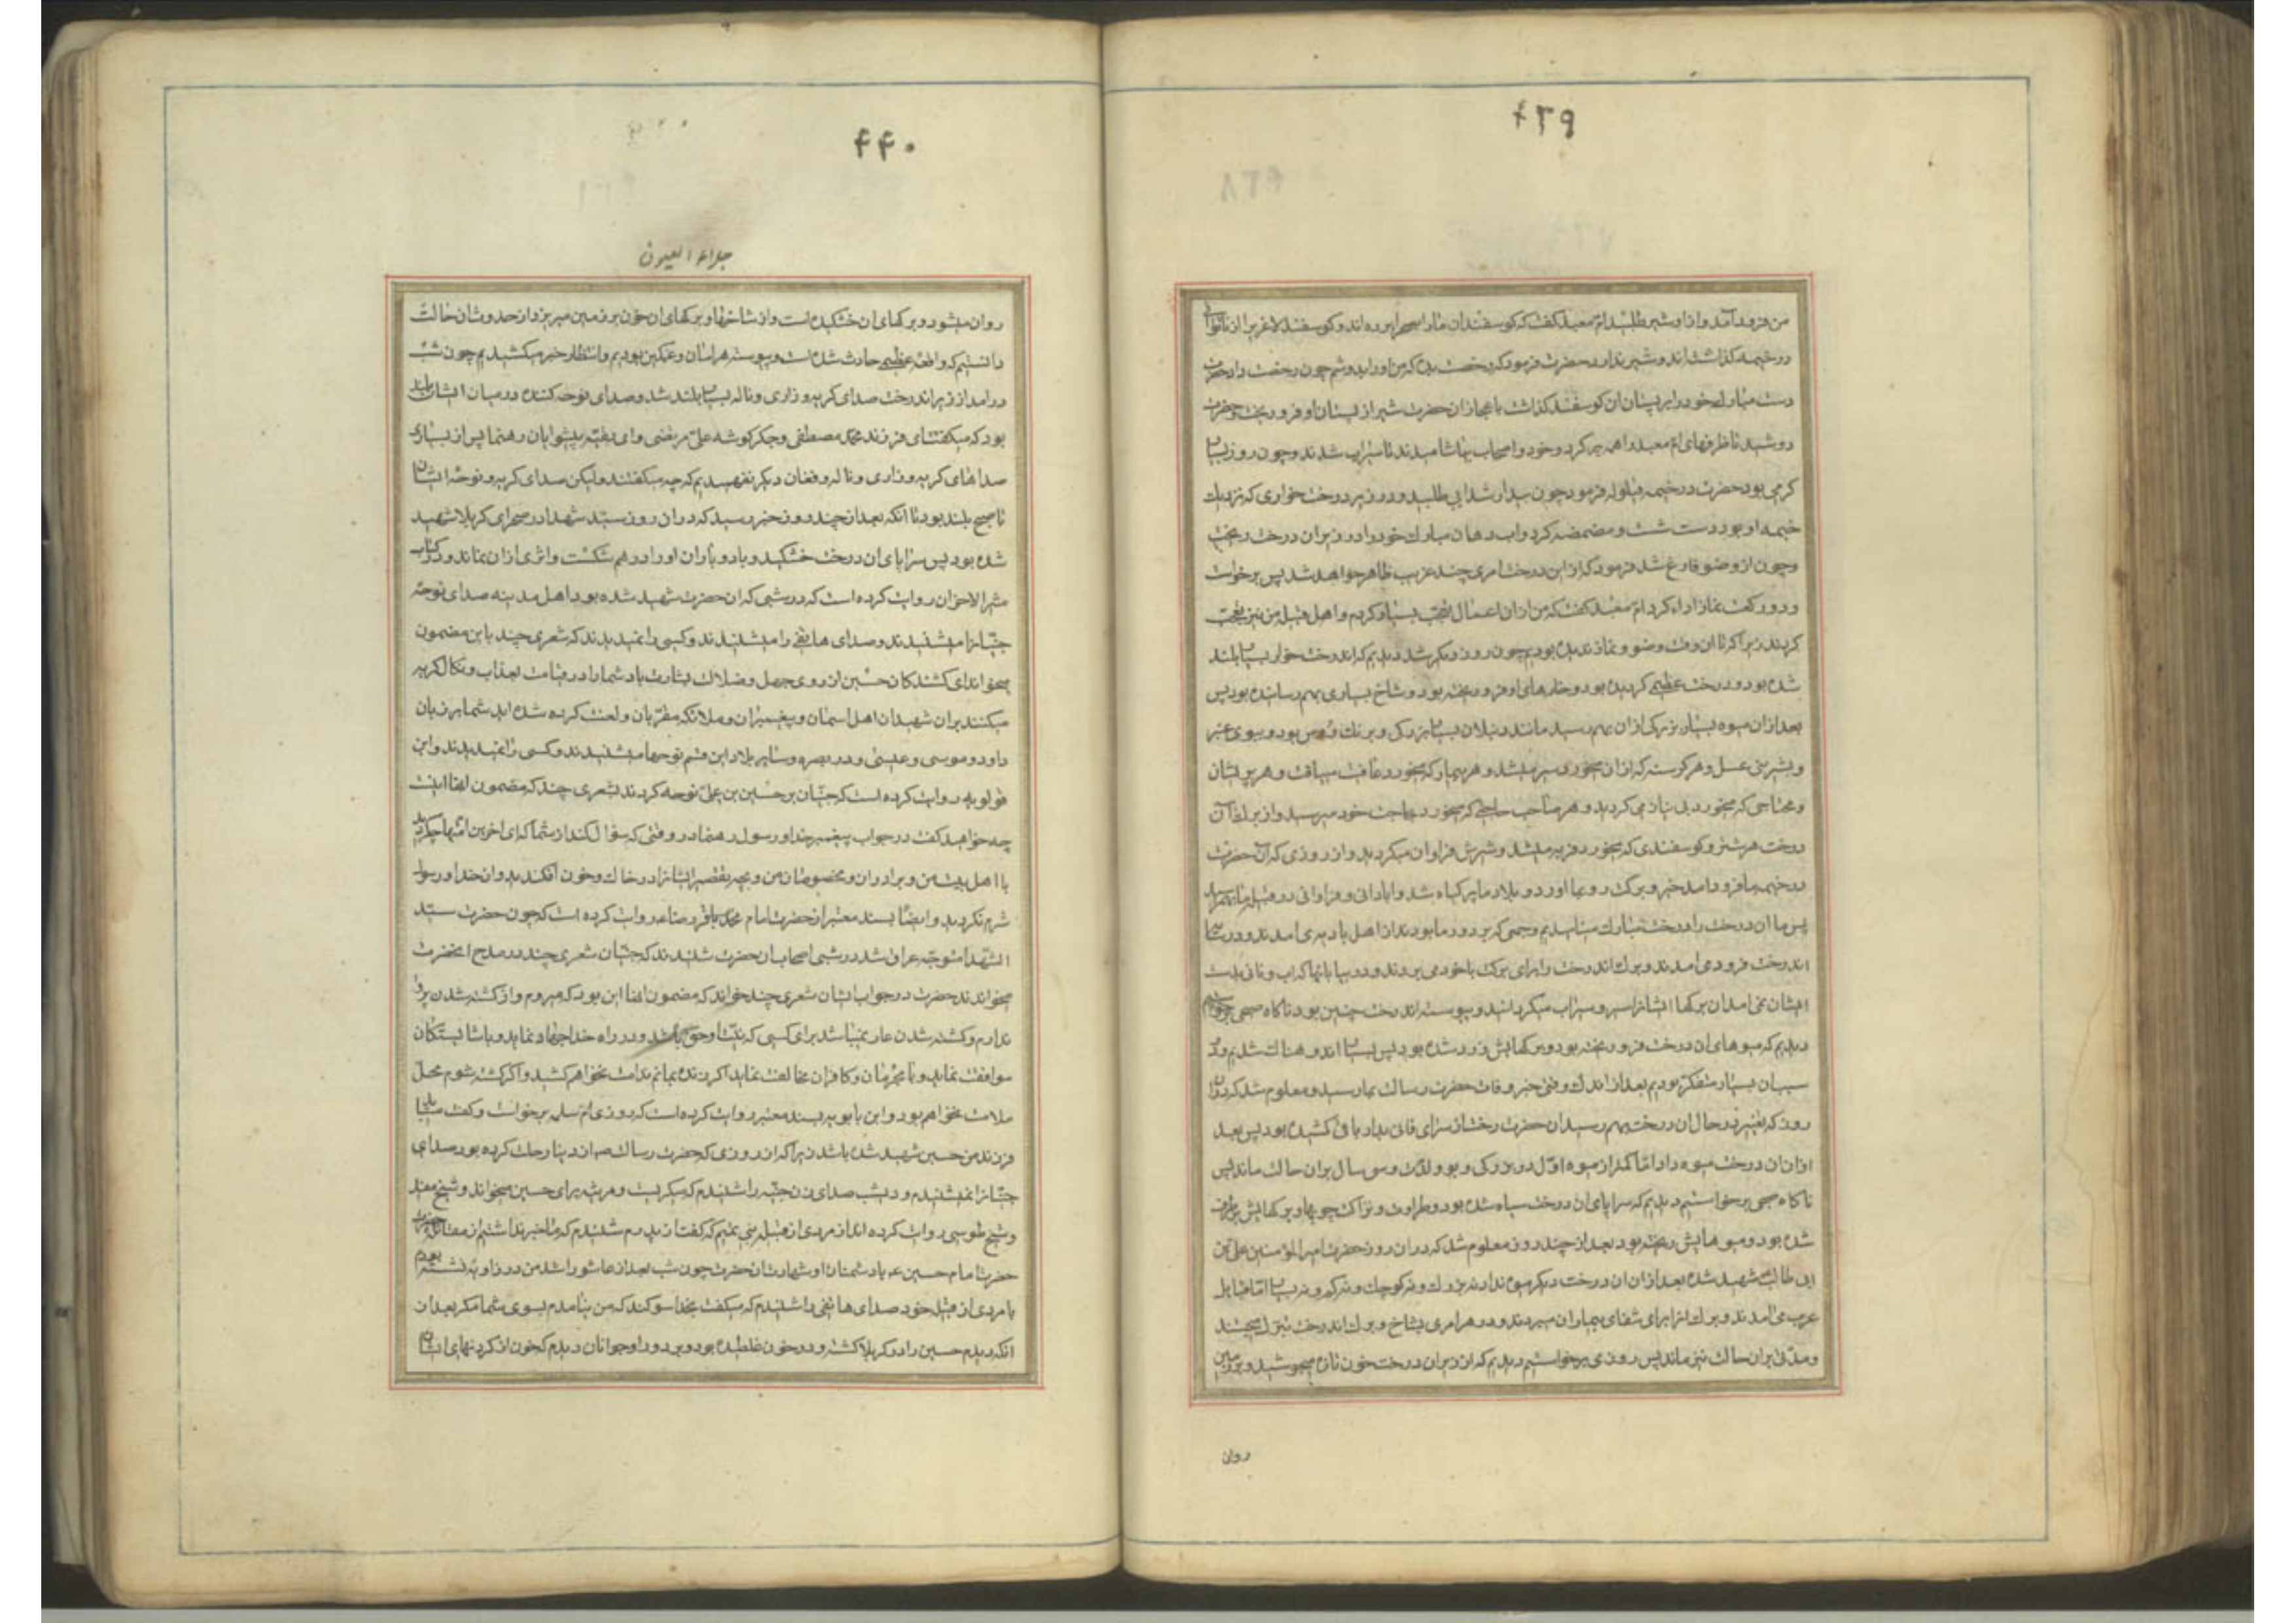 ۴۳۹
من فرود آمد و از او شیر طلبید ام معبد گفت که کوسفندان ما را بصحرا برده اند و کوسفند لاغریرا از ناتوانی
در خیمه کذاشته اند و شیر ندارد حضرت فرمود که رخصت بده که من او را بدوشم چون رخصت داد حضرت
دست مبارك خود را بر پستان ان کوسفند کذاشت باعجاز ان حضرت شیر از پستان او فرو ریخت و حضرت
دوشید تا ظرفهای ام معبد را همه پر کرد و خود و اصحاب بیاشامیدند تا سیراب شدند و چون روز بسیار
کرمی بود حضرت در خیمه قیلوله فرمود چون بیدار شد ابی طلبید و در زیر درخت خواری که نزدیك
خیمه او بود دست شست و مضمضه کرد و اب دهان مبارك خود را در زیر ان درخت ریخت
و چون از وضو فارغ شد فرمود که از این درخت امری چند غریب ظاهر خواهد شد پس برخواست
و دو رکعت نماز اداء کرد ام معبد گفت که من از ان اعمال تعجب بسیار کردم و اهل قبیله من نیز تعجب
کردند زیرا که تا ان وقت وضو و نماز ندیده بودیم چون روز دیکر شد دیدیم که اندرخت خوار بسیار بلند
شده بود و درخت عظیمی کردیده بود و خارهای او فرو ریخته بود و شاخ بسیاری بهم رسانده بود پس
بعد از ان میوه بسیار بزرکی از ان بهم رسید مانند دنبلان بسیار بزرکی و برنك ورس بود و ببوی عنبر
و بشیرینی عسل و هر کرسنه که از ان بخوردی سیر میشد و هر بیمار که بخورد عافیت مییافت و هر پریشان
و محتاجی که میخورد بی نیاز می کردید و هر صاحب حاجتی که میخورد بحاجت خود میرسید و از برك آن
درخت هر شتر و کوسفندی که بخورد فربه میشد و شیرش فراوان میکردید و از روزی که آن حضرت
در خیمه ما فرود امد خیر و برکت رو بما اورد و بلاد ما پر کیاه شد و ابادانی و فراوانی در قبیله ما بهم رسید
پس ما ان درخت را درخت مبارك مینامیدیم و جمعی که بر دور ما بودند از اهل بادیه می امدند و در سایه
اندرخت فرود می امدند و برك اندرخت را برای برکت با خود می بردند و در بیابانها که اب و نانی بدست
ایشان نمی امد ان برکها ایشانرا سیر و سیراب میکردانید و پیوسته اندرخت چنین بود ناکاه صبحی برخواستیم
دیدیم که میوهای ان درخت فرو ریخته بود و برکهایش زرد شده بود پس بسیار اندوهناك شدیم و در
سبب ان بسیار متفکر بودیم بعد از اندك وقتی خبر وفات حضرت رسالت بما رسید و معلوم شد که در ان
روز که تغییر در حال ان درخت بهم رسید ان حضرت رخت از سرای فانی بدار باقی کشیده بود پس بعد
از ان ان درخت میوه داد اما کمتر از میوه اول در بزرکی و بو و لذت و سی سال بر ان حالت ماند پس
ناکاه صبحی برخواستیم دیدیم که سراپای ان درخت سیاه شده بود و طراوت و نزاکت چوبها و برکهایش برطرف
شده بود و میوهایش ریخته بود بعد از چند روز معلوم شد که در ان روز حضرت امیر المؤمنین علی بن
ابی طالب شهید شده بعد از ان ان درخت دیکر میوه نداد نه بزرك و نه کوچك و نه کم و نه بسیار اما قبایل
عرب می امدند و برك انرا برای شفای بیماران میبردند و در هر امری بشاخ و برك اندرخت تبرك میجستند
و مدتی بر ان حالت نیز ماند پس روزی برخواستیم دیدیم که از زیر ان درخت خون تازه میجوشید و بر زمین
روان
۴۴۰
جلاء العیون
روان میشود و برکهای ان خشکیده است و از شاخها و برکهای ان خون بر زمین میریزد از حدوث ان حالت
دانستیم که واقعه عظیمی حادث شده است و پیوسته هراسان و غمکین بودیم و انتظار خبر میکشیدیم چون شب
در امد از زیر اندرخت صدای کریه و زاری و ناله بسیار بلند شد و صدای نوحه کننده در میان ایشان بلند
بود که میکفت ای فرزند محمد مصطفی و جکر کوشه علی مرتضی و ای بقیه پیشوایان رهنما پس از بسیاری
صداهای کریه و زاری و ناله و فغان دیکر نفهمیدیم که چه میکفتند ولیکن صدای کریه و نوحه ایشان
تا صبح بلند بود تا انکه بعد از چند روز خبر رسید که در ان روز سید شهدا در صحرای کربلا شهید
شده بود پس سراپای ان درخت خشکید و باد و باران او را در هم شکست و اثری از ان نماند و در کتاب
مثیر الاحزان روایت کرده است که در شبی که ان حضرت شهید شده بود اهل مدینه صدای نوحه
جنیانرا میشنیدند و صدای هاتفی را میشنیدند و کسی را نمیدیدند که شعری چند باین مضمون
میخواند ای کشندکان حسین از روی جهل و ضلالت بشارت باد شما را در قیامت بعذاب و نکال کریه
میکنند بر ان شهید ان اهل اسمان و پیغمبران و ملائکه مقربان و لعنت کرده شده اید شما بر زبان
داود و موسی و عیسی و در بصره و سایر بلاد این قسم نوحها میشنیدند و کسی را نمیدیدند و ابن
قولویه روایت کرده است که جنیان بر حسین بن علی نوحه کردند بشعری چند که مضمون انها اینست
چه خواهید کفت در جواب پیغمبر خدا و رسول رهنما در وقتی که سؤال کند از شما که ای اخرین امتها چه کردید
با اهل بیت من و برادران و مخصوصان من و بچه تقصیر ایشانرا در خاك و خون افکندید و از خدا و رسول
شرم نکردید و ایضا بسند معتبر از حضرت امام محمد باقر صلعم روایت کرده است که چون حضرت سید
الشهدا متوجه عراق شد در شبی اصحاب ان حضرت شنیدند که جنیان شعری چند در مدح انحضرت
میخواندند حضرت در جواب ایشان شعری چند خواند که مضمون انها این بود که میروم و از کشته شدن پروا
ندارم و کشته شدن عار نمیباشد برای کسی که نیت او حق باشد و در راه خدا جهاد نماید و با شایستکان
موافقت نماید و با مجرمان و کافران مخالفت نماید اکر زنده بمانم ندامت نخواهم کشید و اکر کشته شوم محل
ملامت نخواهم بود و ابن بابویه بسند معتبر روایت کرده است که روزی ام سلمه برخواست و کفت میباید
فرزند من حسین شهید شده باشد زیرا که از روزی که حضرت رسالت ص از دنیا رحلت کرده بود صدای
جنیانرا نمیشنیدم و دیشب صدای زن جنیه را شنیدم که میکریست و مرثیه برای حسین میخواند و شیخ مفید
و شیخ طوسی روایت کرده اند از مردی از قبیله بنی تمیم که کفت از پدرم شنیدم که ما خبر نداشتیم از مقاتله
حضرت امام حسین ع با دشمنان او و شهادت ان حضرت چون شب بعد از عاشورا شد من در زاویه نشسته بودم
با مردی از قبیله خود صدای هاتفی را شنیدم که میکفت بخدا سوکند که من نیامدم بسوی شما مکر بعد از
انکه دیدم حسین را در کربلا کشته و در خون غلطیده بود و بر دور او جوانان دیدم که خون از کردنهای ایشان